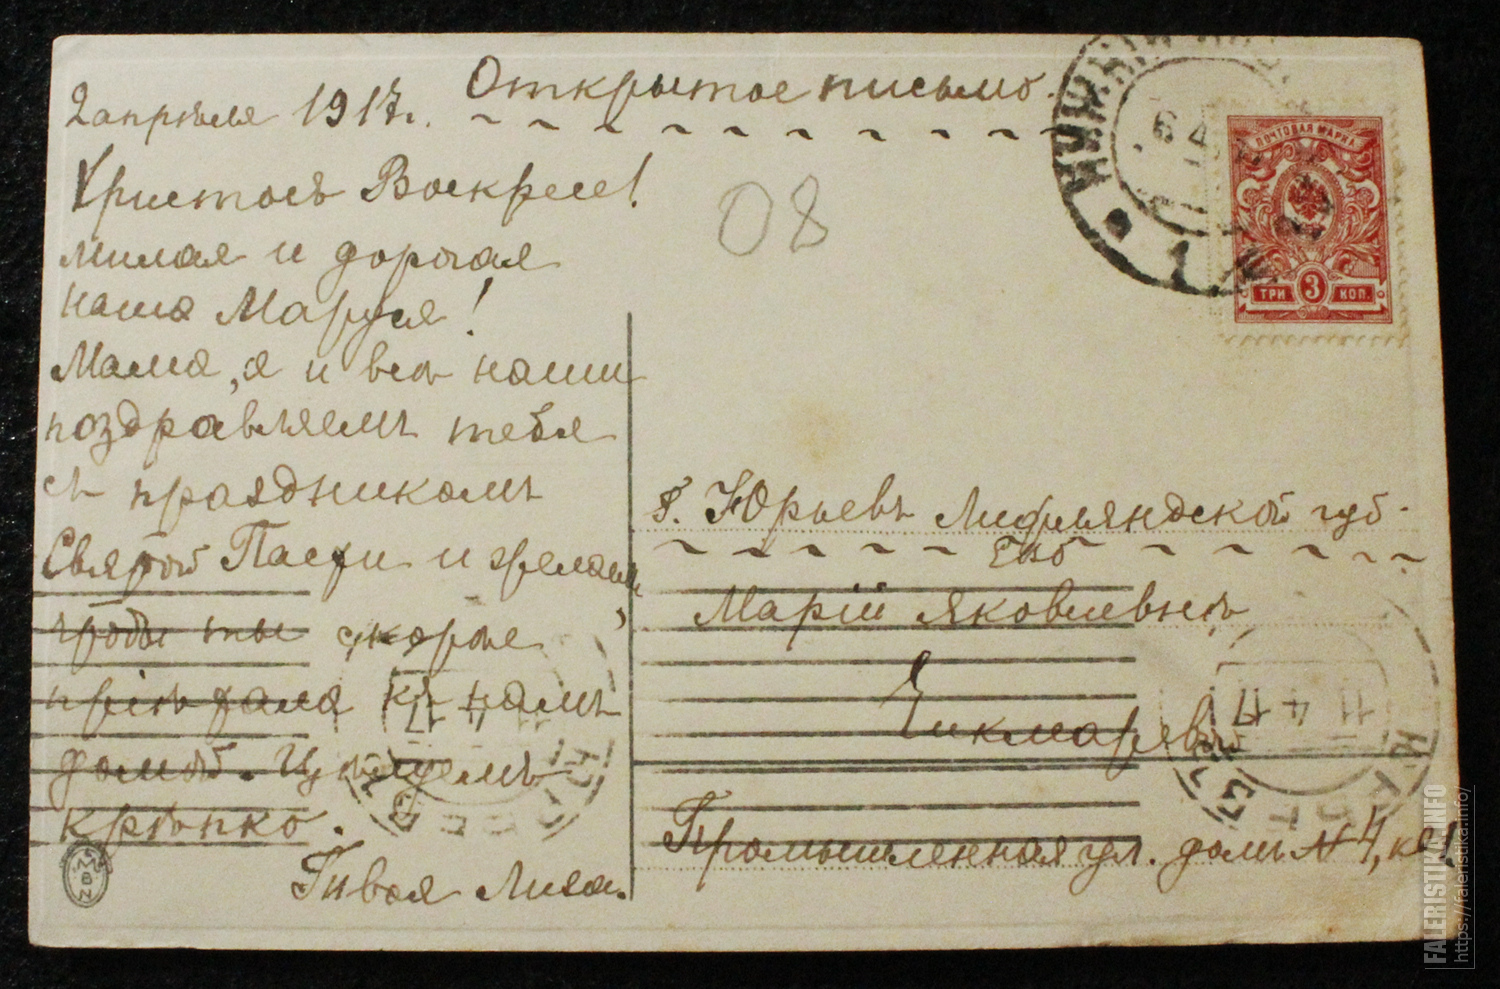 Открытое письмо.
2 апрѣля 1917г.
Христосъ Воскресе!
милая и дорогая
наша Маруся!
Мама, я и всѣ наши
поздравляемъ тебя
съ праздникомъ
Святой Пасхи и желаем,
чтобы ты скорѣе
пріѣхала къ намъ
домой. Цѣлуемъ
крѣпко.
Твоя Лиза.
08
НИЖНІЙ
ПОЧТОВАЯ МАРКА
ТРИ 3 КОП.
г. Юрьевъ Лифляндской губ.
Евб
Маріи Яковлевнѣ
Чикмаревой
Промышленная ул. домъ № 4, кв 1.
11 4 17
FALERISTIKA.INFO
https://faleristika.info/